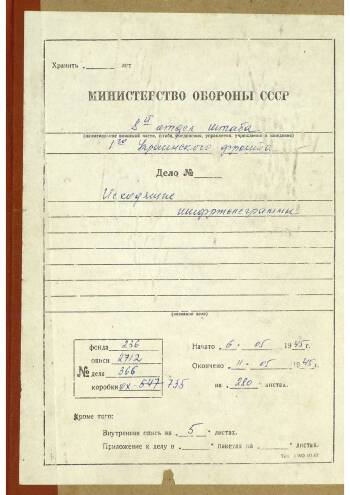 Хранить ______ лет
МИНИСТЕРСТВО ОБОРОНЫ СССР
8й отдел штаба
(наименование воинской части, штаба, соединения, управления, учреждения и заведения)
1го Украинского фронта
Дело № ____
Исходящие
шифртелеграммы
фонда 236
описи 2712
№ дела 366
коробки 735
Начато 6. 05 1945 г.
Окончено 11. 05 1945 г.
на 280 листах.
Кроме того:
Внутренняя опись на 5 листах.
Приложение к делу в " пакетах на " листах.